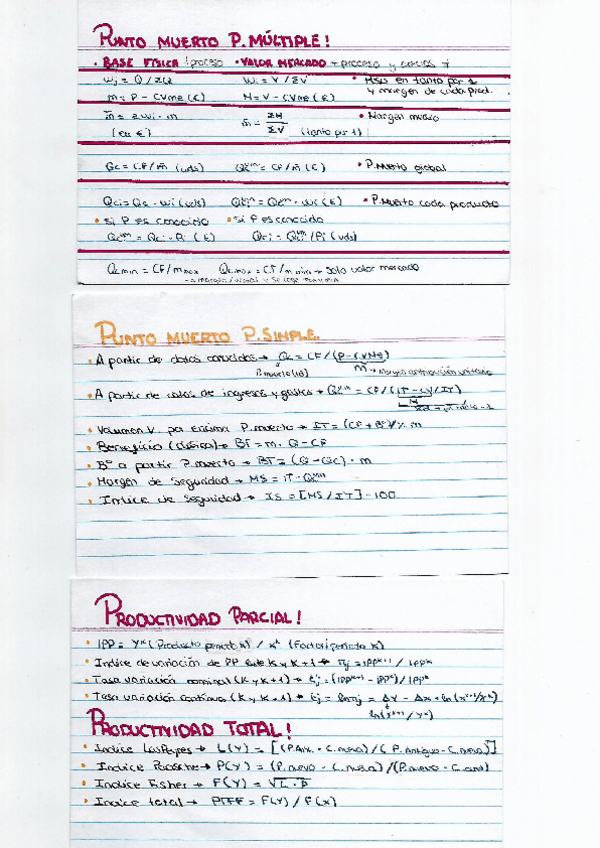 PUNTO MUERTO P. MÚLTIPLE!
• BASE FÍSICA 1 proceso • VALOR MERCADO + proceso y varios
Wi = V / ΣV • Mgs en tanto por 1
m = P - CVMe (€) M = V - CVMe (€) y margen de cada prod.
m̄ = Σwi · m m̄ = ΣM / ΣV • Margen medio
(en €) (tanto por 1)
Qc = CF/m̄ (uds) Qcᵘᵐ = CF/m̄ (€) • P. Muerto global
Qci = Qc · wi (uds) Qciᵘᵐ = Qcᵘᵐ · wi (€) • P. Muerto cada producto
• Si P es conocido • Si P es conocido
Qciᵘᵐ = Qci · Pi (€) Qci = Qciᵘᵐ / Pi (uds)
Qcmin = CF/mmax Qcmax = CF/mmin → solo valor mercado
PUNTO MUERTO P. SIMPLE.
• A partir de datos conocidos → Qc = CF / (P - CVMe)
P. muerto (ud) m → Margen contribución unitario
• A partir de datos de ingresos y gastos → Qcᵘᵐ = CF / (IT - CV/IT)
• Volumen V. por encima P. muerto → IT = (CF + Bº) / % m
• Beneficio (clásico) → BT = m · Q - CF
• Bº a partir P. muerto → BT = (Q - Qc) · m
• Margen de Seguridad → MS = IT - Qcᵘᵐ
• Índice de Seguridad → IS = [MS / IT] · 100
PRODUCTIVIDAD PARCIAL!
• IPP = Yᵏ (Producto periodo K) / Xᵏ (Factor periodo K)
• Índice de variación de PP entre K y K + 1 → πj = IPPᵏ⁺¹ / IPPᵏ
• Tasa variación nominal (K y K + 1) → tj = (IPPᵏ⁺¹ - IPPᵏ) / IPPᵏ
• Tasa variación continua (K y K + 1) → tj = ln πj = ΔY - Δx → ln (xᵏ⁺¹/xᵏ)
ln (yᵏ⁺¹ / yᵏ)
PRODUCTIVIDAD TOTAL!
• Índice Laspeyres → L(Y) = [(P. Ant. · C. nueva) / (P. Antiguo · C. nueva)]
• Índice Paasche → P(Y) = (P. nuevo · C. nueva) / (P. nuevo · C. ant)
• Índice Fisher → F(Y) = √L · P
• Índice total → PTFF = F(Y) / F(x)